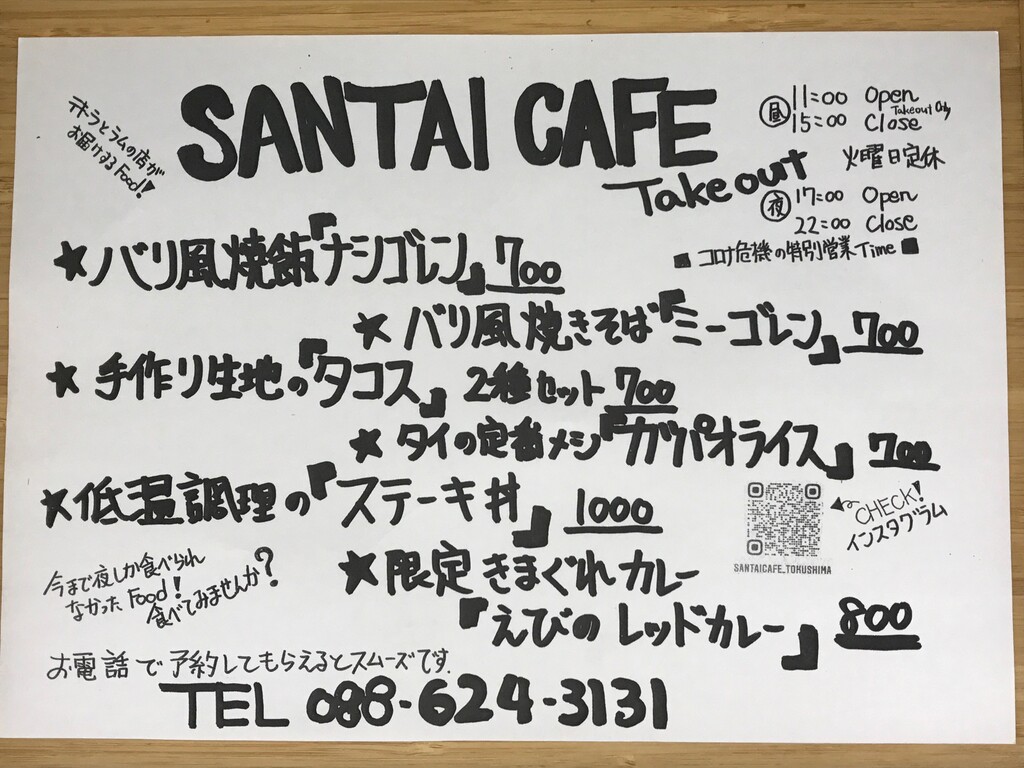 テキーラとラムの店が
お届けするFood!!
SANTAI CAFE
Takeout
昼 11:00 Open
Takeout Only
15:00 Close
火曜日定休
夜 17:00 Open
22:00 Close
■ コロナ危機の特別営業Time ■
★バリ風焼飯『ナシゴレン』700
★バリ風焼きそば『ミーゴレン』700
★手作り生地の『タコス』2種セット 700
★タイの定番メシ『ガパオライス』700
★低温調理の『ステーキ丼』1000
CHECK!
インスタグラム
SANTAICAFE_TOKUSHIMA
今まで夜しか食べられ
なかったFood!
食べてみませんか?
★限定きまぐれカレー
『えびのレッドカレー』800
お電話で予約してもらえるとスムーズです.
TEL 088-624-3131